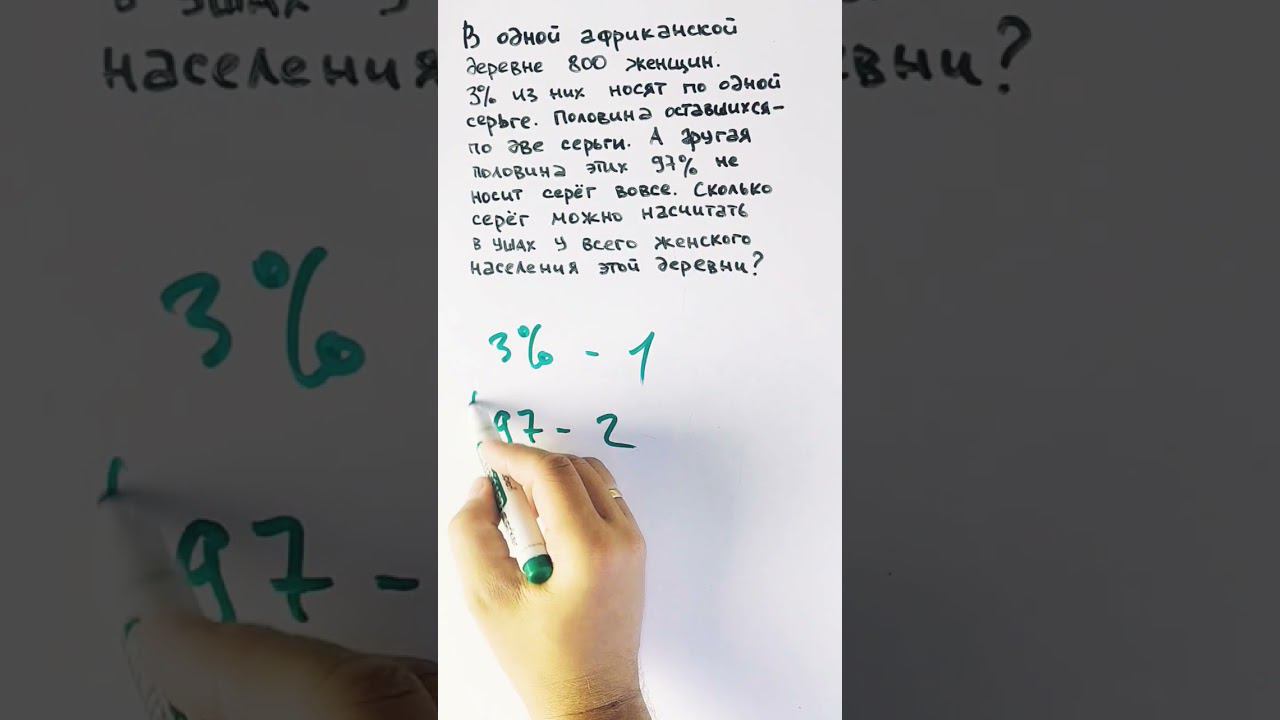 В одной африканской
деревне 800 женщин.
3% из них носят по одной
серьге. Половина оставшихся-
по две серьги. А другая
половина этих 97% не
носит серёг вовсе. Сколько
серёг можно насчитать
в ушах у всего женского
населения этой деревни?
3% - 1
97 - 2
в ушах у
населения
евни?
3%
97 -